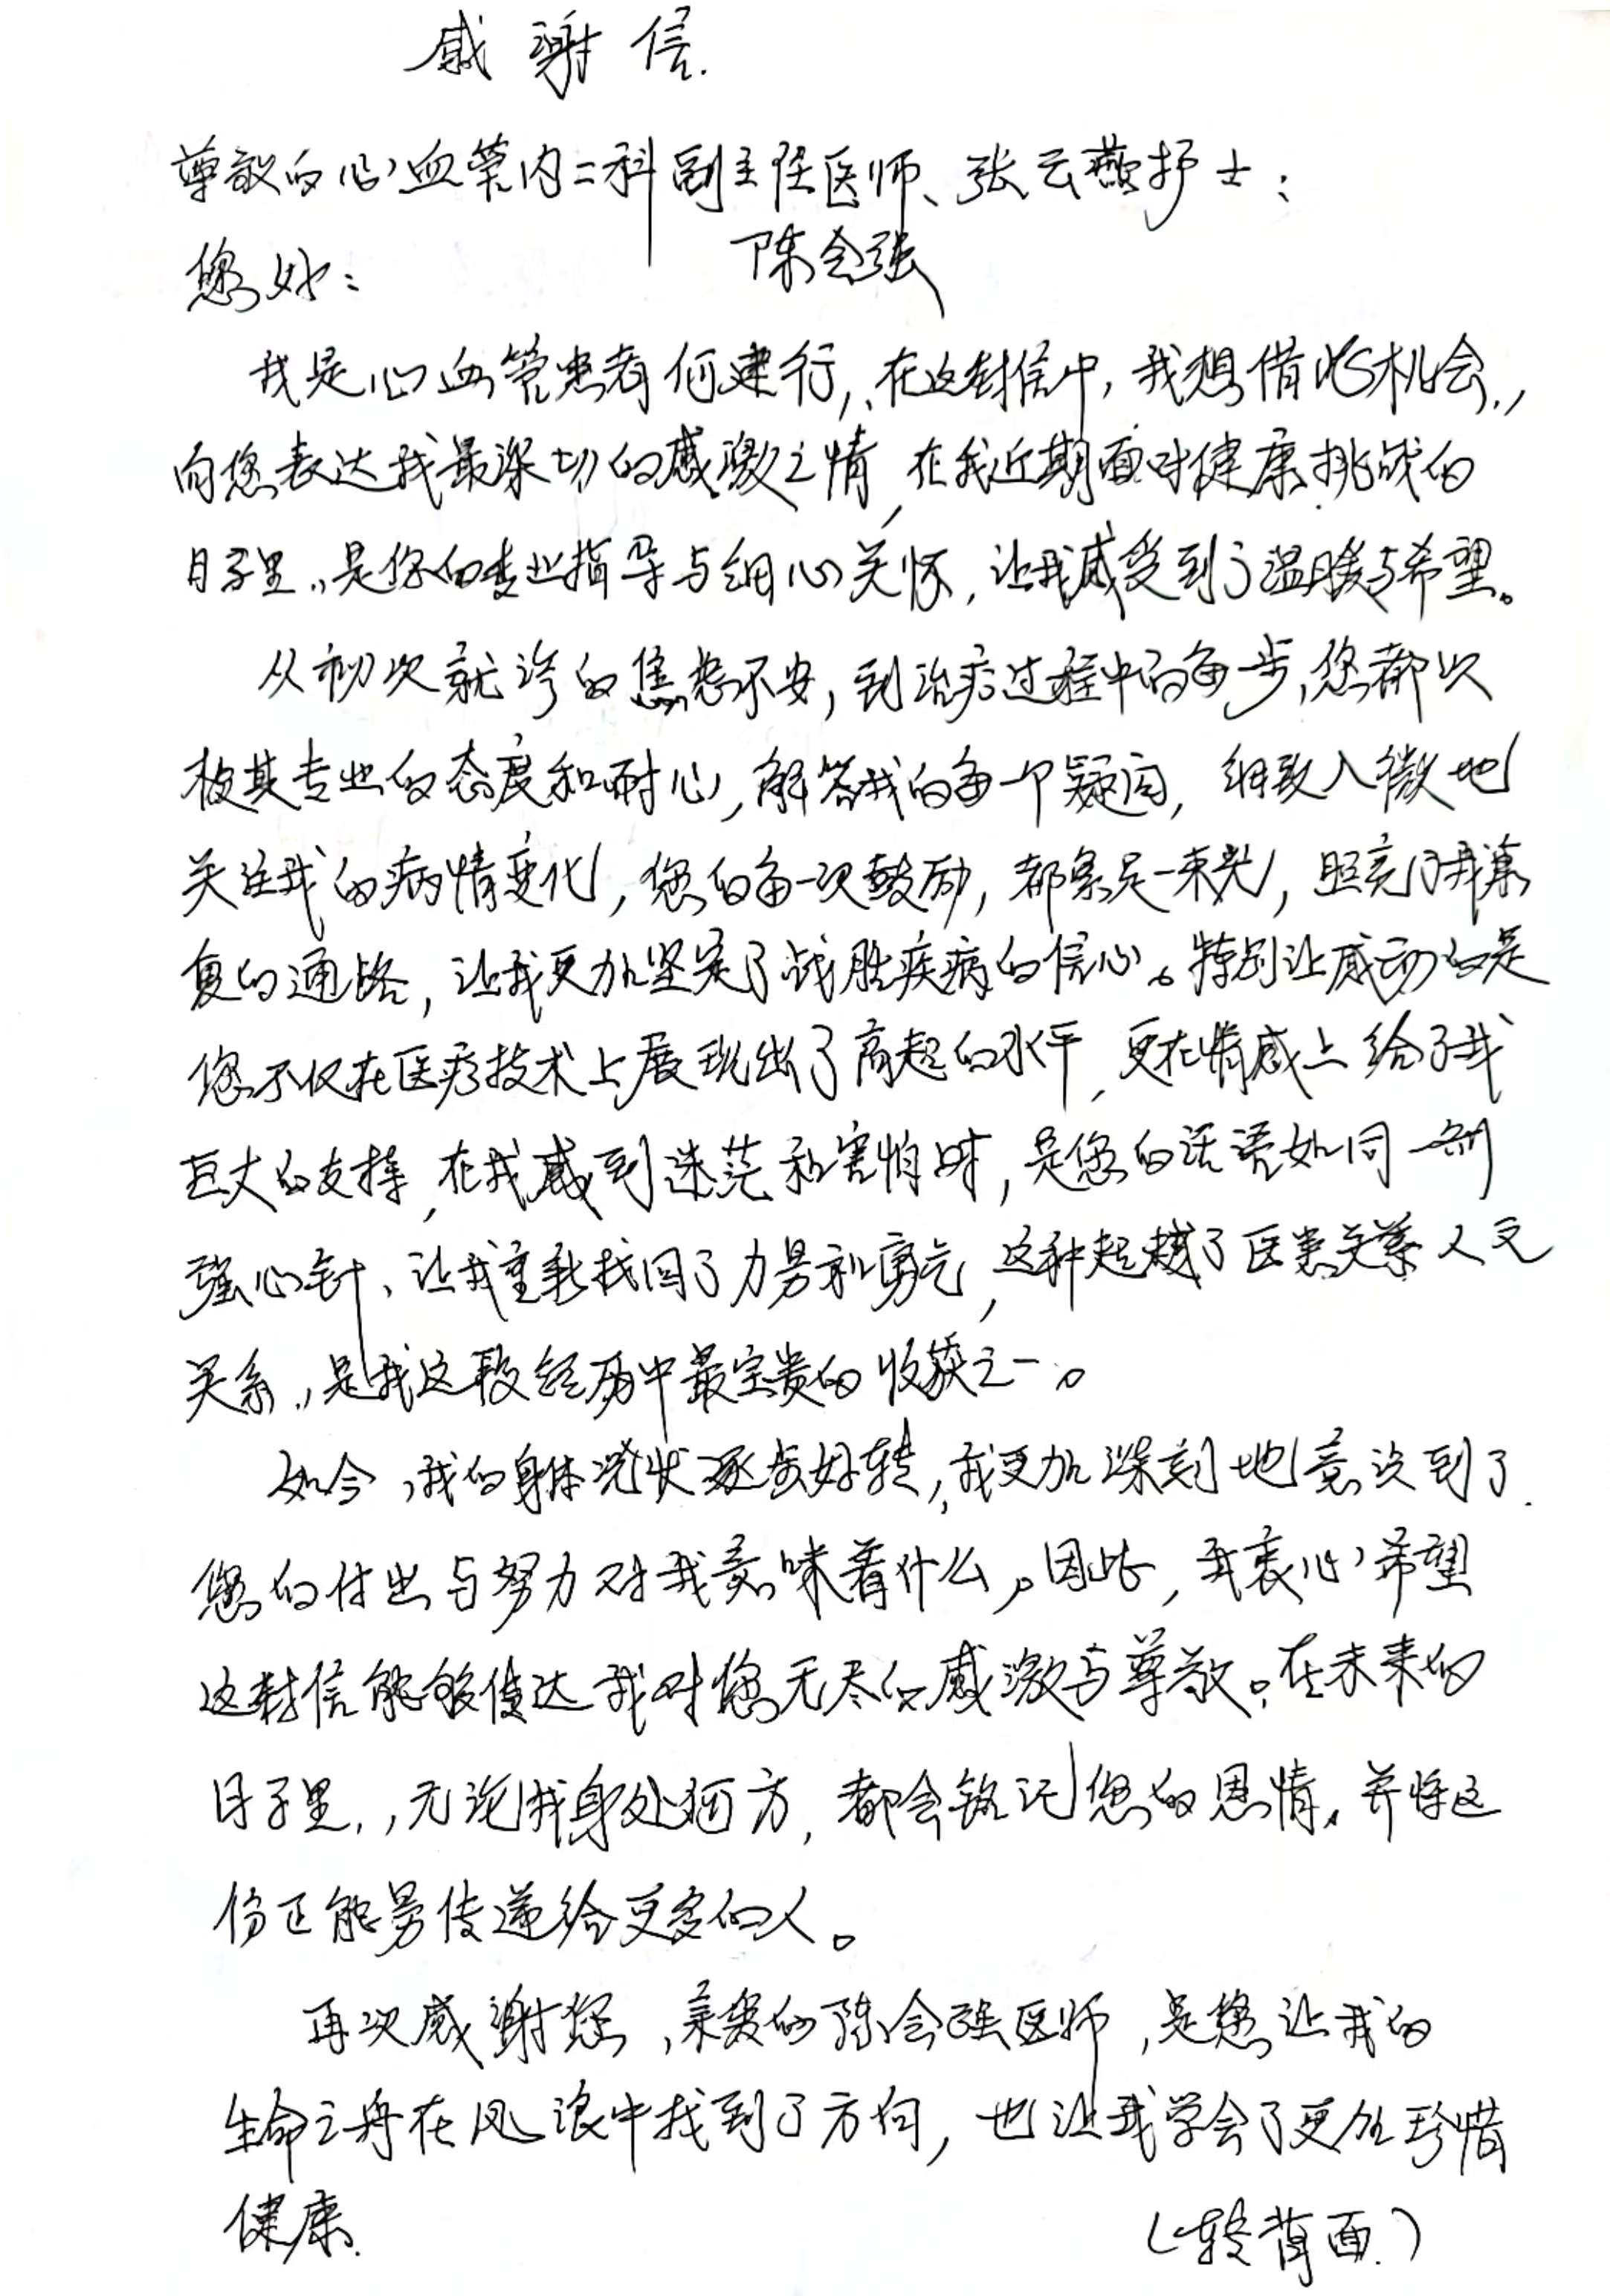 感谢信.
尊敬的心血管内二科副主任医师、张云燕护士：
陈会强
您好：
我是心血管患者何建行,、在这封信中,我想借此机会.,
向您表达我最深切的感激之情,在我近期面对健康挑战的
日子里.,是您的专业指导与细心关怀,让我感受到了温暖与希望。
从初次就诊的焦虑不安,到治疗过程中的每一步,您都以
极其专业的态度和耐心,解答我的每一个疑问,细致入微地
关注我的病情变化,您的每一次鼓励,都象是一束光,照亮了我康
复的通路,让我更加坚定了战胜疾病的信心。特别让感动的是
您不仅在医疗技术上展现出了高超的水平,更在情感上给了我
巨大的支撑,在我感到迷茫和害怕时,是您的话语如同一剂
强心针、让我重新找回了力量和勇气,这种超越了医患关系人文
关系.,是我这段经历中最宝贵的收获之一。
如今,我的身体况状逐步好转,我更加深刻地意识到了.
您的付出与努力对我意味着什么。因此,我衷心希望
这封信能够传达我对您无尽的感激与尊敬。在未来的
日子里.,无论我身处何方,都会铭记您的恩情,并将这
份正能量传递给更多的人。
再次感谢您,亲爱的陈会强医师,是您让我的
生命之舟在风浪中找到了方向,也让我学会了更加珍惜
健康.
(转背面.)